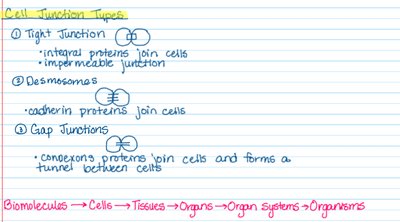 Cell Junction Types
① Tight Junction
• integral proteins join cells
• impermeable junction
② Desmosomes
• cadherin proteins join cells
③ Gap Junctions
• connexons proteins join cells and forms a
tunnel between cells
Biomolecules → Cells → Tissues → Organs → Organ Systems → Organisms